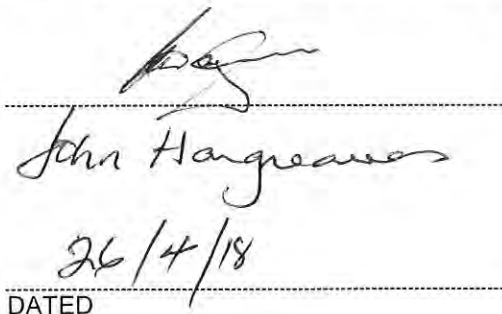 John Hargreaves
26/4/18
DATED